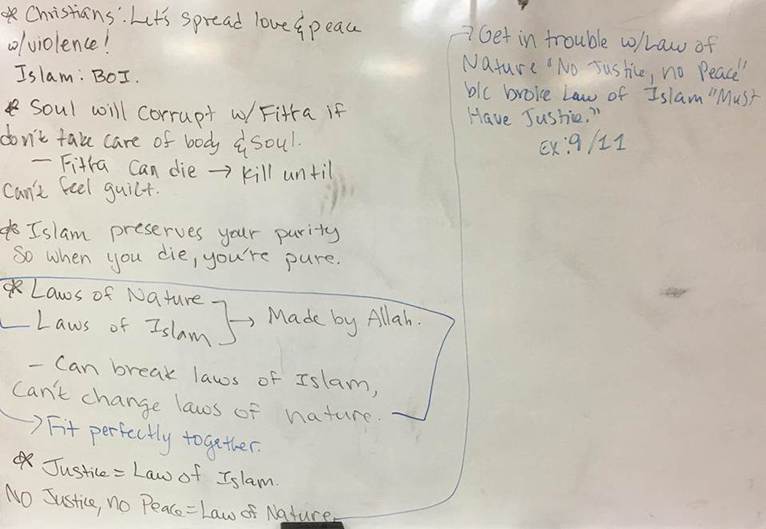 * Christians: Let's spread love & peace
w/violence!
Islam: BOI.
* Soul will corrupt w/Fitra if
don't take care of body & soul.
- Fitra can die → kill until
can't feel guilt.
* Islam preserves your purity
so when you die, you're pure.
* Laws of Nature
Laws of Islam → Made by Allah.
- Can break laws of Islam,
can't change laws of nature.
→ Fit perfectly together.
* Justice = Law of Islam.
No Justice, no Peace = Law of Nature
→ Get in trouble w/Law of
Nature "No Justice, no Peace"
b/c broke Law of Islam "Must
Have Justice."
Ex: 9/11